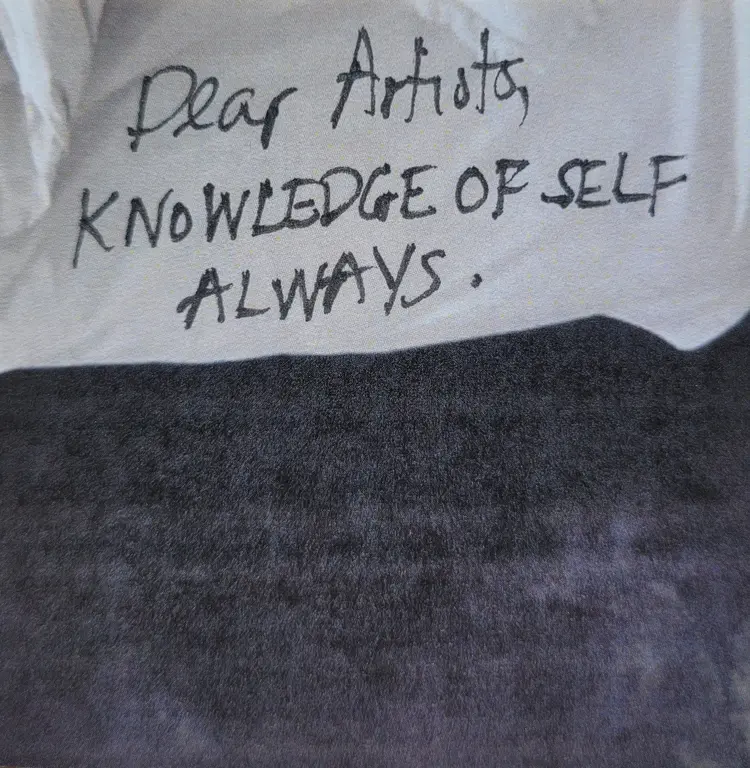 Dear Artists,
KNOWLEDGE OF SELF
ALWAYS.